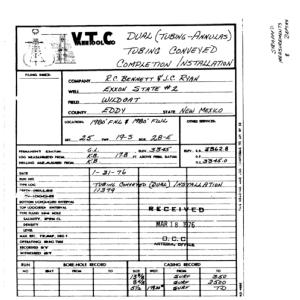 V.T.C.
VANN TOOL CO
DUAL (TUBING-ANNULAS)
TUBING CONVEYED
COMPLETION / INSTALLATION
COMPANY R.C. BENNETT & J.C. RYAN
WELL EXXON STATE #2
FIELD WILDCAT
COUNTY EDDY STATE NEW MEXICO
LOCATION 1980' FNL & 1980' FWL OTHER SERVICES:
SEC. 25 TWP. 19-S RGE. 28-E
PERMANENT DATUM: G.L. ELEV. 3345
LOG MEASURED FROM K.B. FT. ABOVE PERM. DATUM
DRILLING MEASURED FROM K.B. G.L. 3345.0
DATE 1-31-76
RUN NO.
TYPE LOG TUBING CONVEYED (DUAL) INSTALLATION
DEPTH-DRILLER 11399
DEPTH-LOGGER
BOTTOM LOGGED INTERVAL
TOP LOGGED INTERVAL
TYPE FLUID IN HOLE
DENSITY
LEVEL
MAX. REC. TEMP., DEG. F.
OPERATING RIG TIME
RECORDED BY
WITNESSED BY
RECEIVED
MAR 18 1976
O. C. C.
ARTESIA, OFFICE
RUN BORE-HOLE RECORD CASING RECORD
NO. BIT FROM TO SIZE WGT. FROM TO
13 3/8 SURF 350
SURF 2500
5 1/2 SURF TD